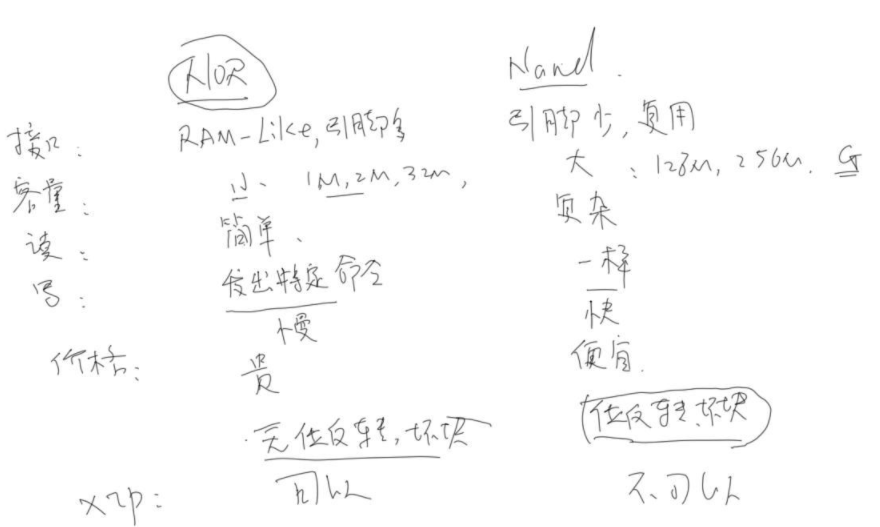 NOR Nand.
接口: RAM-Like,引脚多 引脚少,复用
容量: 小、1M,2M,32M, 大:128M,256M. G
读: 简单、 复杂
写: 发出特定命令 一样
慢 快
价格: 贵 便宜.
无位反转,坏块 位反转、坏块
XIP: 可以 不可以